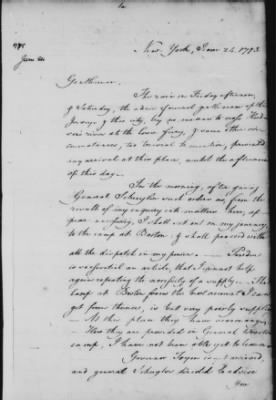 New York, June 24. 1775
Gentlemen
The rain on Friday afternoon,
& Saturday, the advice of several gentlemen of the
Jerseys & this city, by no means to cross Hud-
son's river at the lower ferry, & some other cir-
cumstances, too trivial to mention, prevented
my arrival at this place, until the afternoon
of this day.
In the morning, after giving
General Schuyler such orders as, from the
result of my inquiry into matters here,
appear necessary, I shall set out on my journey
to the camp at Boston, & shall proceed with
all the dispatch in my power. Powder
is so essential an article, that I cannot help
again repeating the necessity of a supply. The
camp at Boston, from the best account I can
get from thence, is but very poorly supplied
At this place they have
How they are provided in General Wooster's
camp, I have not been able yet to learn.
Governor Tryon is arrived,
and general Schuyler